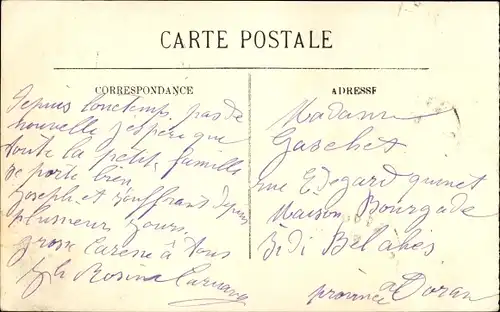 CARTE POSTALE
CORRESPONDANCE
Depuis lonctemp pas de
nouvelle j'espère que
toute la petite famille
se porte bien
Joseph et souffrant depuis
plusieurs jours
grosse caresse à tous
Rosine
ADRESSE
Madame
Gaschet
rue Edegard quinet
Maison Bourgade
Sidi Belabès
province d'Oran